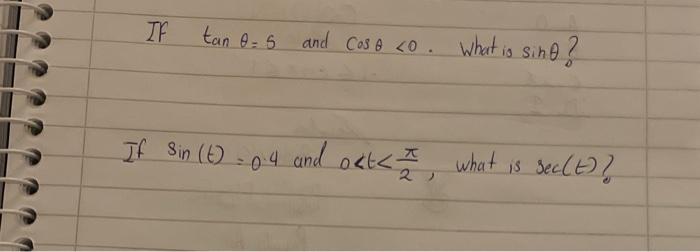 If tan θ = 5 and Cos θ < 0. What is sin θ?
If Sin (t) = 0.4 and 0<t<π/2, what is sec(t)?